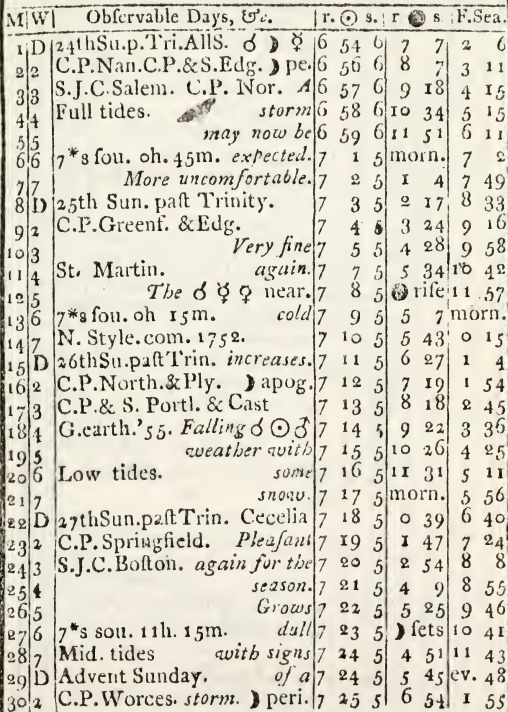 M W Obſervable Days, &c. r. ☉ s. r ● s F.Sea.
1 D 24thSu.p.Tri.AllS. ☌ ☽ ☿ 6 54 6 7 7 2 6
2 2 C.P.Nan.C.P.&S.Edg. ☽ pe. 6 56 6 8 7 3 11
3 3 S.J.C.Salem. C.P. Nor. A 6 57 6 9 18 4 15
4 4 Full tides. storm 6 58 6 10 34 5 15
5 5 may now be 6 59 6 11 51 6 11
6 6 7*s ſou. 0h. 45m. expected. 7 1 5 morn. 7 2
7 7 More uncomfortable. 7 2 5 1 4 7 49
8 D 25th Sun. paſt Trinity. 7 3 5 2 17 8 33
9 2 C.P.Greenf. &Edg. 7 4 5 3 24 9 16
10 3 Very fine 7 5 5 4 28 9 58
11 4 St. Martin. again. 7 7 5 5 34 10 42
12 5 The ☌ ☿ ♀ near. 7 8 5 ● riſe 11 57
13 6 7*s ſou. 0h 15m. cold 7 9 5 5 7 morn.
14 7 N. Style.com. 1752. 7 10 5 5 43 0 15
15 D 26thSu.paſtTrin. increases. 7 11 5 6 27 1 4
16 2 C.P.North.&Ply. ☽ apog. 7 12 5 7 19 1 54
17 3 C.P.& S. Portl. & Cast 7 13 5 8 18 2 45
18 4 G.earth.'55. Falling ☌ ☉ ♂ 7 14 5 9 22 3 36
19 5 weather with 7 15 5 10 26 4 25
20 6 Low tides. some 7 16 5 11 31 5 11
21 7 snow. 7 17 5 morn. 5 56
22 D 27thSun.paſtTrin. Cecelia 7 18 5 0 39 6 40
23 2 C.P.Springfield. Pleaſant 7 19 5 1 47 7 24
24 3 S.J.C.Boſton. again for the 7 20 5 2 54 8 8
25 4 ſeason. 7 21 5 4 9 8 55
26 5 Grows 7 22 5 5 25 9 46
27 6 7*s sou. 11h. 15m. dull 7 23 5 ☽ ſets 10 41
28 7 Mid. tides with signs 7 24 5 4 51 11 43
29 D Advent Sunday. of a 7 24 5 5 45 ev. 48
30 2 C.P.Worces. storm. ☽ peri. 7 25 5 6 54 1 55